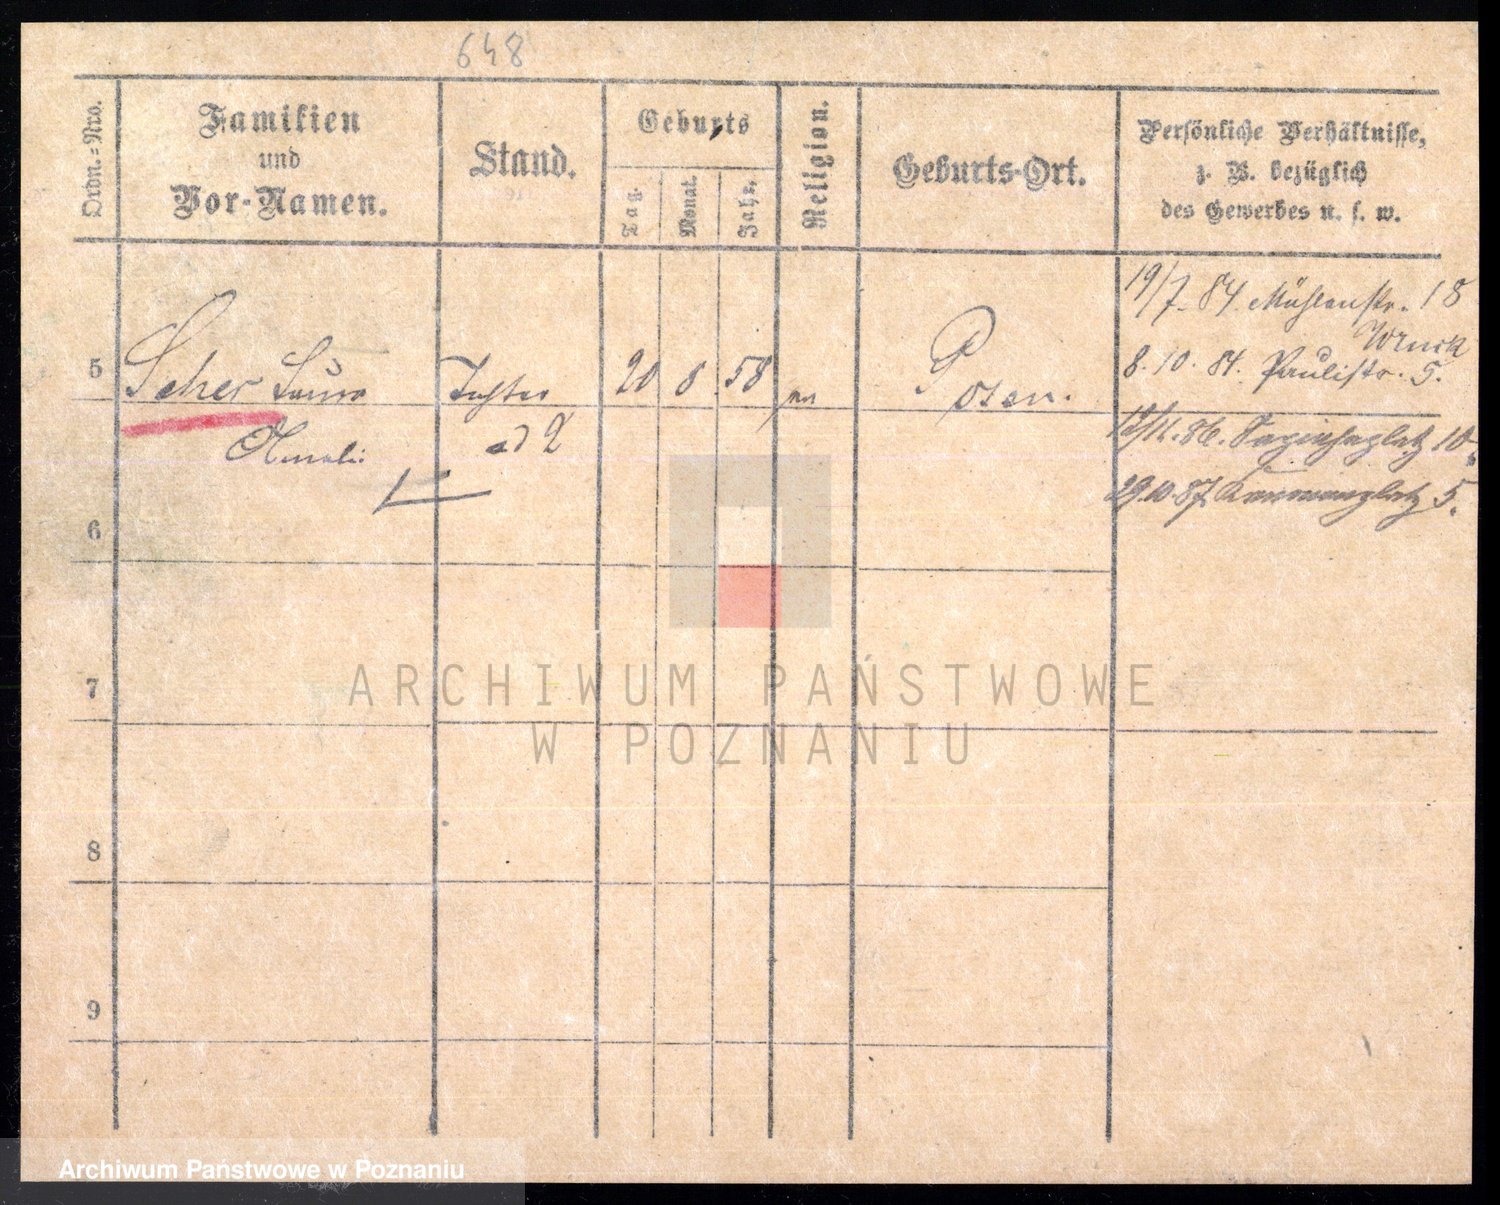 648
Ordn.=Nro.
Familien
und
Vor-Namen.
Stand.
Geburts
Tag.
Monat.
Jahr.
Religion.
Geburts-Ort.
Persönliche Verhältnisse,
z. B. bezüglich
des Gewerbes u. s. w.
19/7. 84. Mühlenstr. 18
5 Scher Laura Tochter 20 8 58 Posen.
8. 10. 84. Paulistr. 5.
ad 2
86. 10.
29.10.87. 5.
6
7
8
9
ARCHIWUM PAŃSTWOWE
W POZNANIU
Archiwum Państwowe w Poznaniu